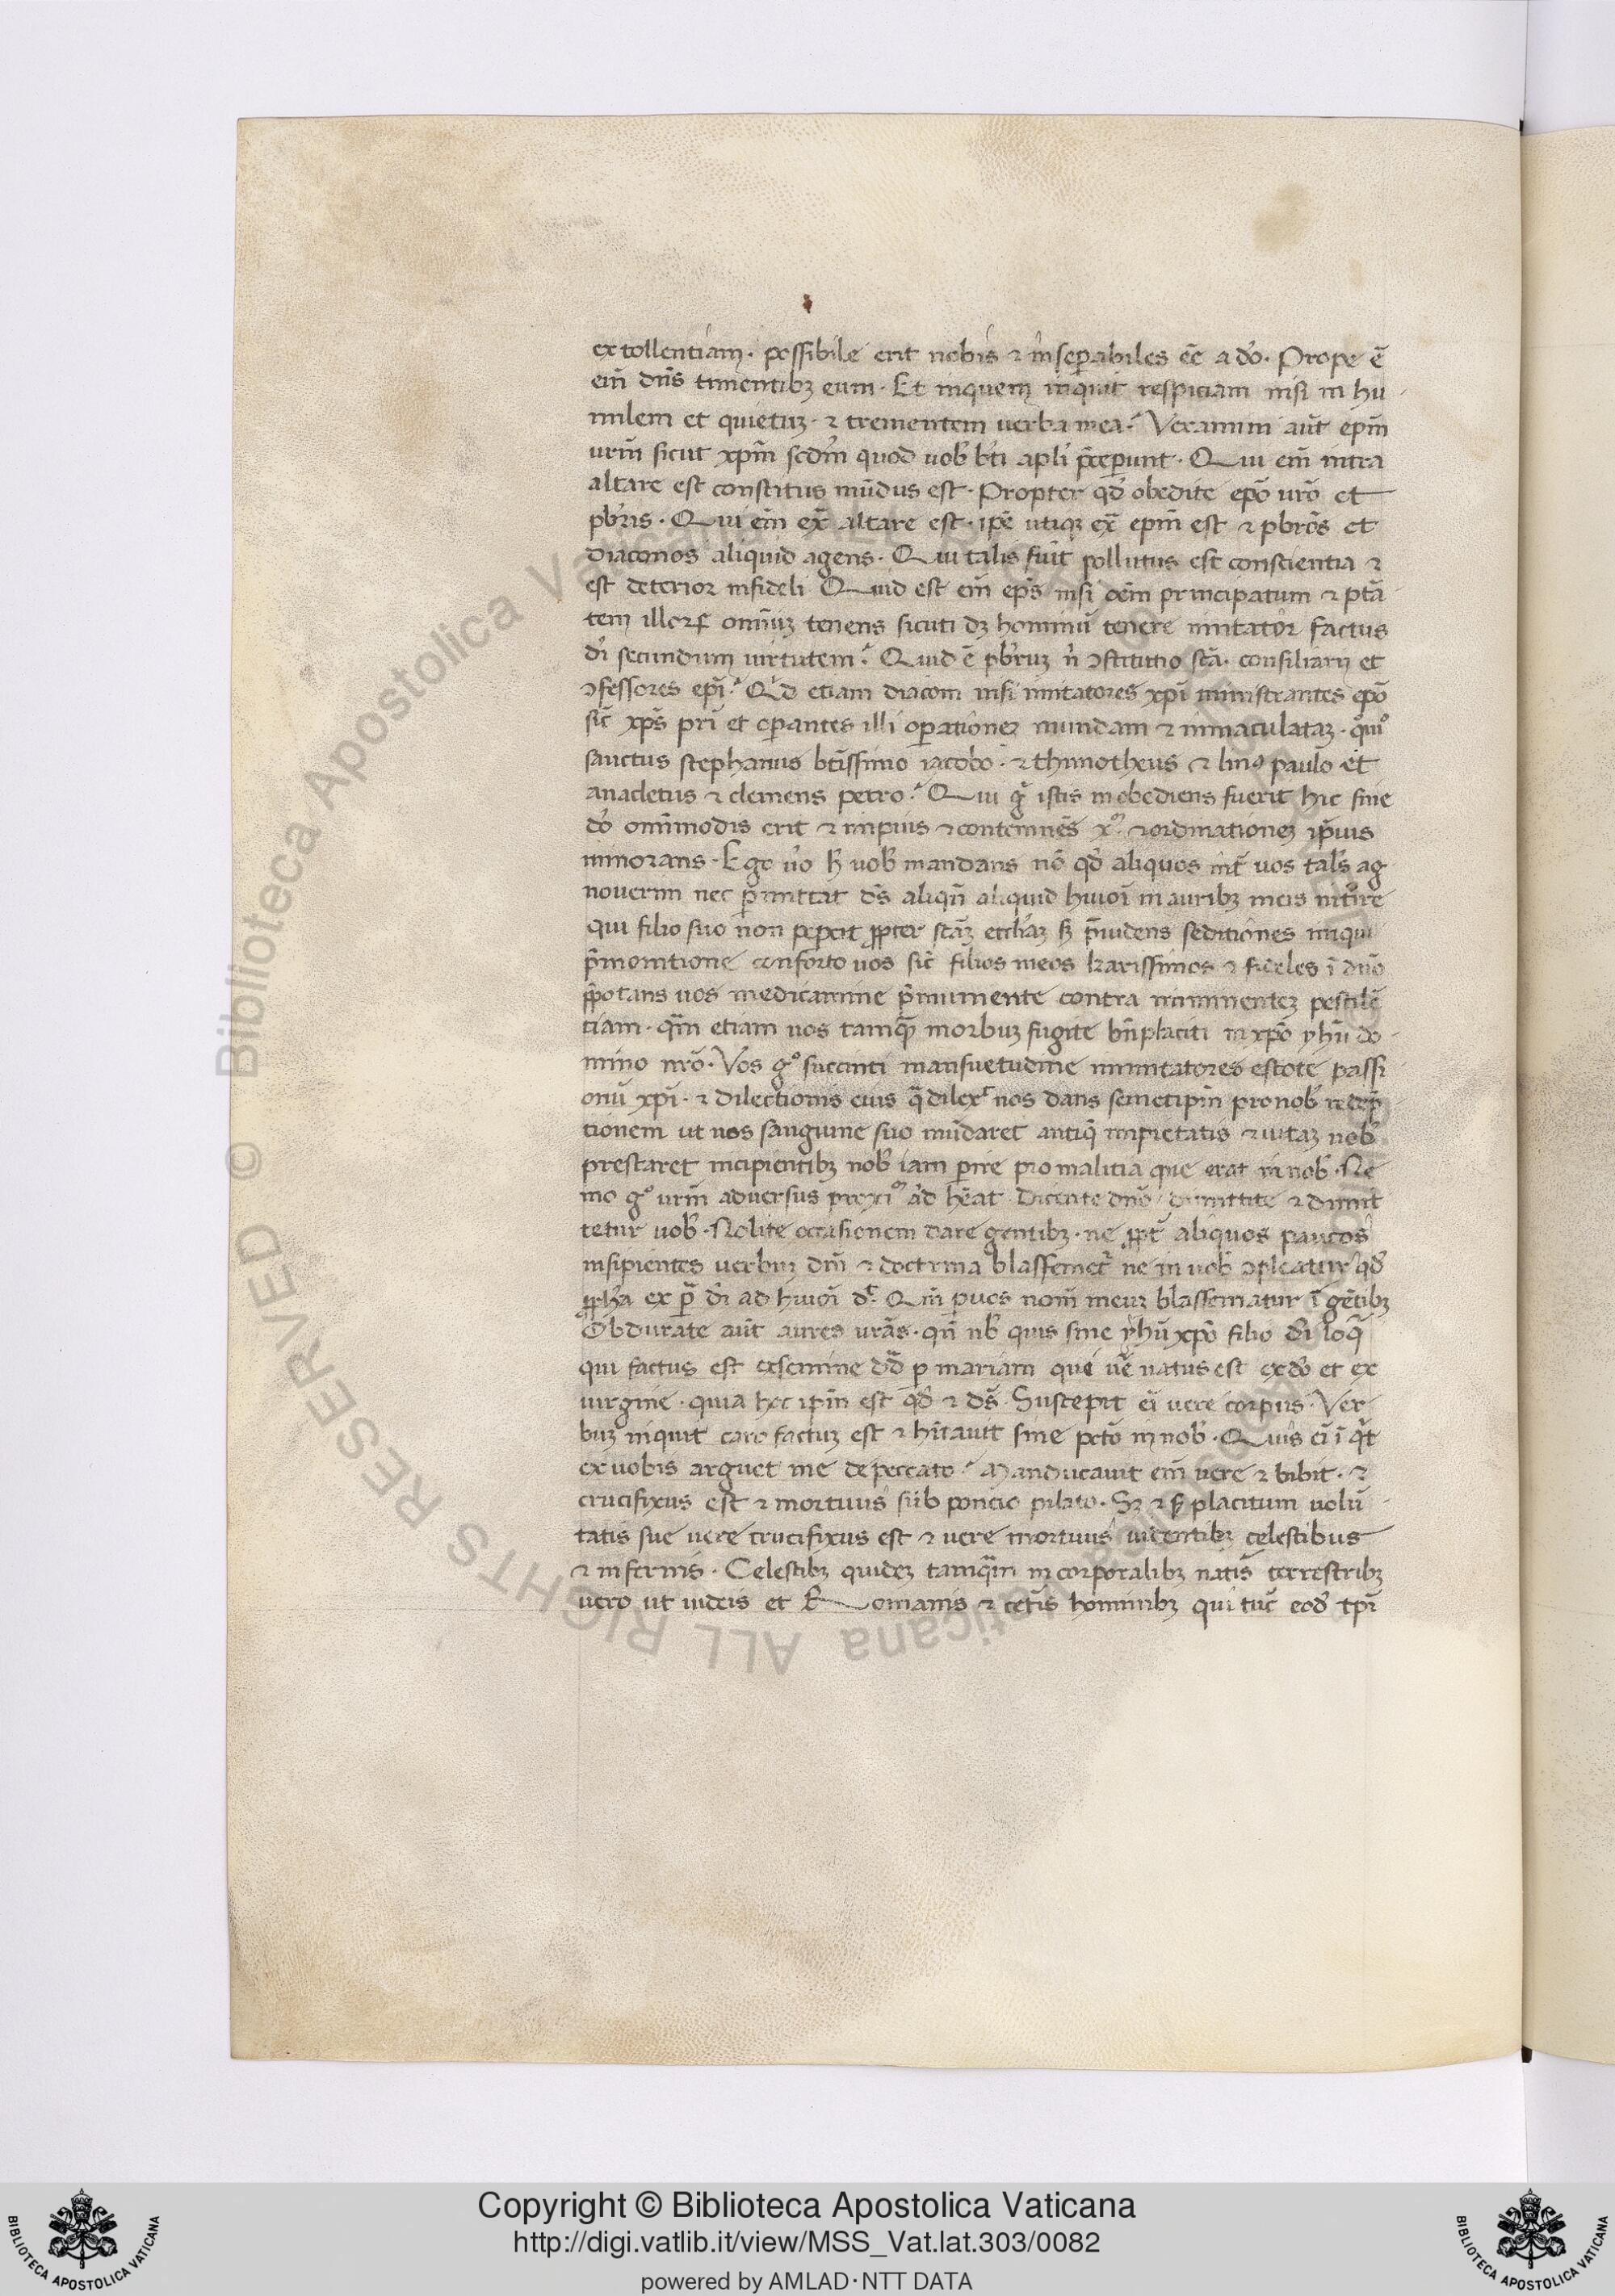 extollentiam. possibile erit nobis ⁊ inseꝑabiles eē a do. Prope ē
eim̄ dn̄s timentibꝫ eum. Et inquem inquit respiciam nisi in hu
milem et quietuꝫ. ⁊ trementem uerba mea? Veramini aūt ep̄m
urm̄ sicut xp̄m scdm̄ quod uob̄ bt̄i apl̄i p̄ceꝑunt. Qui em̄ intra
altare est constitus mūdus est. Propter qd̄ obedite ep̄o uro̅ et
pb̄ris. Qui em̄ ex̄ altare est. ip̄e utiqꝫ ex̄ ep̄m est ⁊ pbro̅s et
diaconos aliquid agens. Qui talis fuit pollutus est conscientia ⁊
est deterior infideli Quid est em̄ ep̄s nisi oēm principatum ⁊ ptā
tem illoꝝ omniuꝫ tenens sicuti dꝫ hominū tenere imitator factus
di̅ secundum uirtutem? Quid ē pbr̄uꝫ n̄ ꝯstitutio sc̄a. consiliarii et
ꝯfessores ep̄i? Qd̄ etiam diaconi nisi imitatores xp̄i ministrantes ep̄o
sic̄ xp̄s pr̄i et oꝑantes illi oꝑationeꝫ mundam ⁊ inmaculataꝫ. qm̊
sanctus stephanus bt̄issimo iacobo. ⁊ thimotheus ⁊ linꝯ paulo et
anacletus ⁊ clemens petro? Qui gͦ istis inobediens fuerit hic sine
do̅ omnimodis erit ⁊ impius ⁊ contemnēs xͫ ⁊ ordinationeꝫ ip̄ius
minorans. Ego uo̅ h̄ uob̄ mandans nō qd̄ aliquos int̄ uos tal̄s ag
nouerim nec ꝑmittat ds̄ aliqn̄ aliquid huioī in auribꝫ meis intōre
qui filio suo non peꝑcit ꝓpter sc̄aꝫ eccl̄iaꝫ sꝫ p̄uidens seditiones iniqui
p̄monitione conforto uos sic̄ filios meos karissimos ⁊ fideles ī dn̄o
ꝓpotans uos medicamine p̄muniente contra imminenteꝫ pestilē
tiam. qm̄ etiam uos tamqꝫ morbuꝫ fugite bn̄placiti in xp̄o yhū do
mino nro̅. Vos gͦ succinti mansuetudine inmitatores estote passi
onū xp̄i. ⁊ dilectionis eius q̄ dilexͭ nos dans semetip̄m pro nob̄ redēp
tionem ut nos sanguine suo mūdaret antiq̄ impietatis ⁊ uitaꝫ nob̄
prestaret incipientibꝫ nob̄ iam ꝑire pro malitia que erat in nob̄. Ne
mo gͦ urm̄ aduersus proxiͫ ad hēat. Dicente dn̄o dimittite ⁊ dimit
tetur uob̄. Nolite occasionem dare gentibꝫ. ne ꝓpt̄ aliquos paucos
insipientes uerbuꝫ dn̄i ⁊ doctrina blasfemet̄ ne in uob̄ ꝯpleatur qd̄
ꝓph̄a ex ꝑ di̅ ad huioī dͭ. Qm̄ ꝑ uos nom̄ meuꝫ blassematur ī gētibꝫ
Obdurate aūt aures urās. qn̄ ub̄ quis sine yhū xp̄o filio di̅ loq̄
qui factus est ex semine dd̄ ꝑ mariam que ue̅ natus est ex do̅ et ex
uirgine. quia hec ip̄m est qd̄ ⁊ ds̄. Suscepit ei̅ uere corpus. Ver
buꝫ inquit caro factuꝫ est ⁊ hītauit sine pctō in nob̄. Quis ei̅ ī qt̄
ex uobis arguet me de peccato? Manducauit em̄ uere ⁊ bibit. ⁊
crucifixus est ⁊ mortuus sub poncio pilato. Sꝫ ⁊ s̄ placitum uolū
tatis sue uere crucifixus est ⁊ uere mortuus uidentibꝫ celestibus
⁊ infernis. Celestibꝫ quideꝫ tamq̄m incorporalibꝫ natis̄ terrestribꝫ
uero ut iudeis et Romanis ⁊ cet̄is hominibꝫ qui tūc eod̄ tp̄r
Copyright © Biblioteca Apostolica Vaticana
http://digi.vatlib.it/view/MSS_Vat.lat.303/0082
powered by AMLAD·NTT DATA
BIBLIOTECA APOSTOLICA VATICANA
BIBLIOTECA APOSTOLICA VATICANA
© Biblioteca Apostolica Vaticana ALL RIGHTS RESERVED